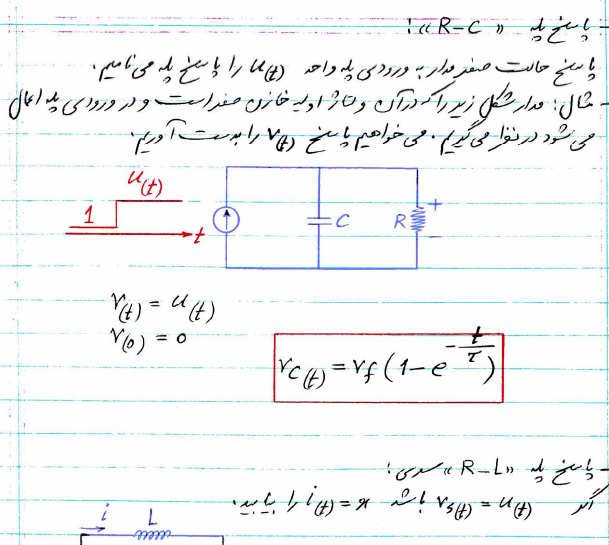 - پاسخ پله «R-C»:
پاسخ حالت صفر مدار به ورودی پله واحد u(t) را پاسخ پله می نامیم.
- مثال: مدار شکل زیر را که در آن ولتاژ اولیه خازن صفر است و در ورودی پله اعمال
می شود در نظر می گیریم. می خواهیم پاسخ v(t) را بدست آوریم.
u(t)
1
t
C
R
+
-
v(t) = u(t)
v(0) = 0
vC(t) = vf (1-e^-t/τ)
- پاسخ پله «R-L» سری:
اگر vs(t) = u(t) باشد i(t) = x را بیابید.
i L